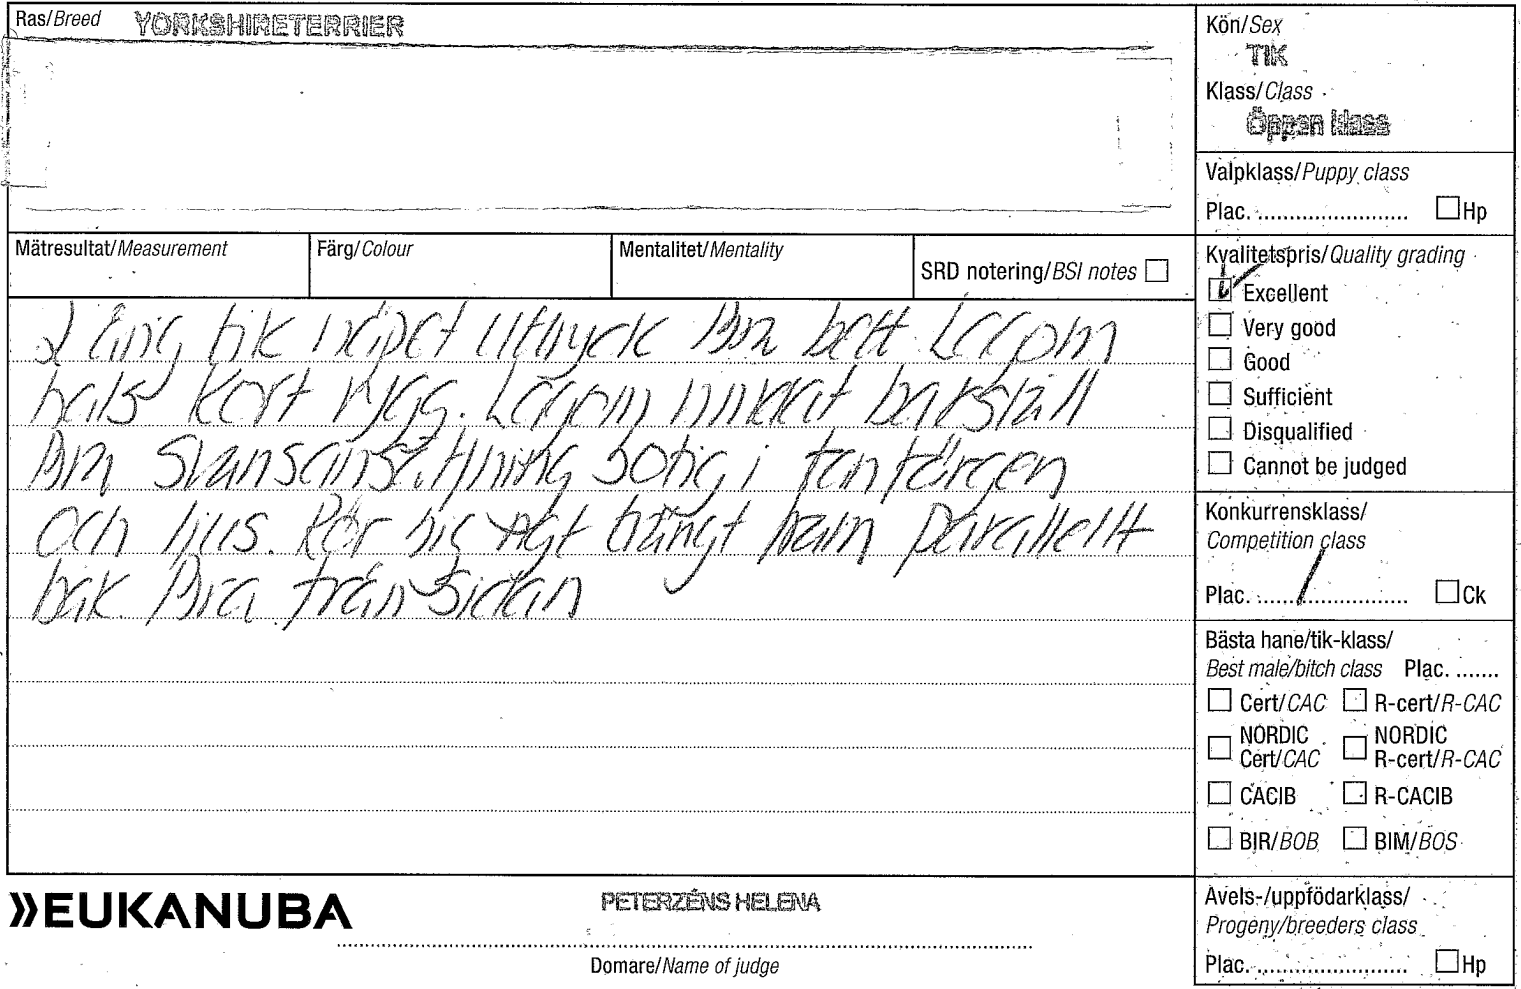 Ras/Breed YORKSHIRETERRIER
Kön/Sex
TIK
Klass/Class
Öppen klass
Valpklass/Puppy class
Plac. ........................ Hp
Mätresultat/Measurement
Färg/Colour
Mentalitet/Mentality
SRD notering/BSI notes
Kvalitetspris/Quality grading
Excellent
Very good
Good
Sufficient
Disqualified
Cannot be judged
tik näpet uttryck Bra bett Lagom
hals kort rygg. Lagom vinklat bakställ
Bra svansansättning sotig i tanfärgen
och ljus. Rör sig trångt fram parallellt
bak. Bra från sidan
Konkurrensklass/
Competition class
Plac. ....1.... Ck
Bästa hane/tik-klass/
Best male/bitch class Plac. .......
Cert/CAC R-cert/R-CAC
NORDIC NORDIC
Cert/CAC R-cert/R-CAC
CACIB R-CACIB
BIR/BOB BIM/BOS
»EUKANUBA
PETERZÉNS HELENA
Domare/Name of judge
Avels-/uppfödarklass/
Progeny/breeders class
Plac. ........................ Hp